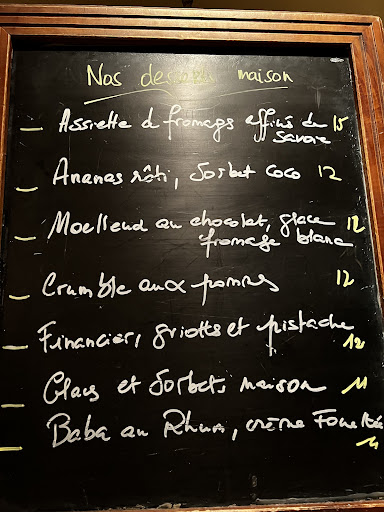 Nos desserts maison
Assiette de fromages affinés de 15
Savoie
Ananas rôti, Sorbet coco 12
Moelleux au chocolat, glace 12
fromage blanc
Crumble aux pommes 12
Financier, griottes et pistache
12
Glaces et Sorbets maison 11
Baba au Rhum, crème Fouettée
11